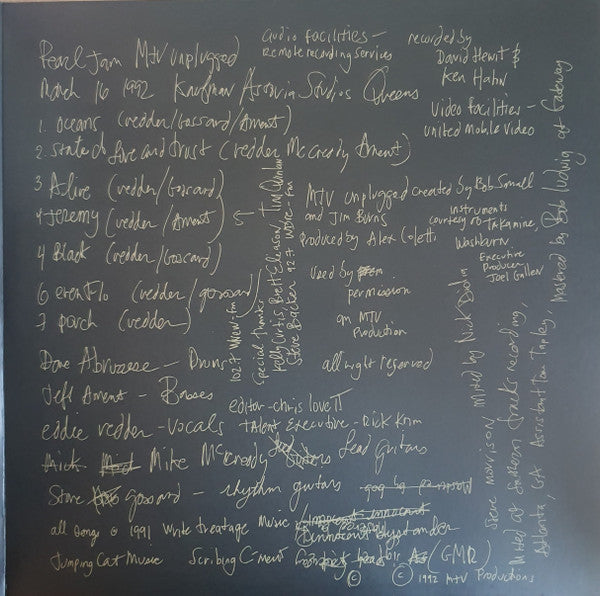 Pearl Jam MTV unplugged
March 16 1992 Kaufman Astoria Studios Queens
audio facilities -
Remote recording services
recorded by
David Hewit &
Ken Hahn
Video facilities -
united mobile video
1. oceans (vedder/Gossard/Ament)
2. state of love and trust (vedder McCready Ament)
3 Alive (vedder/Gossard)
4 Jeremy (vedder/Ament)
4 Black (vedder/Gossard)
6 evenflo (vedder/gossard)
7 porch (vedder)
MTV unplugged created by Bob Small
and Jim Burns
Produced by Alex Coletti
instruments
courtesy of Takamine,
Washburn
Executive
Producer
Joel Gallen
used by
permission
on MTV
Production
all right reserved
102.7 WNEW-FM
Special thanks
Kelly Curtis, Brett Eliason, Tim
Steve Backer 92.7 WDRE-FM
Dave Abruzzese - Drums
Jeff Ament - Basses
eddie vedder - vocals
editor - chris lovett
Talent Executive - Rick Krim
Mick Mike McCready Lead guitars
Stone gossard - rhythm guitars
Mastered by Bob
all songs © 1991 write treatage Music / innocent bystander
Jumping Cat Music Scribing C-ment (GMR)
© © 1992 MTV Productions
Steve Morrison Mixed by Nick Didia
Mixed at Southern Tracks recording,
Atlanta, GA Assistant Tom Tapley,
Mastered by Bob Ludwig at Gateway